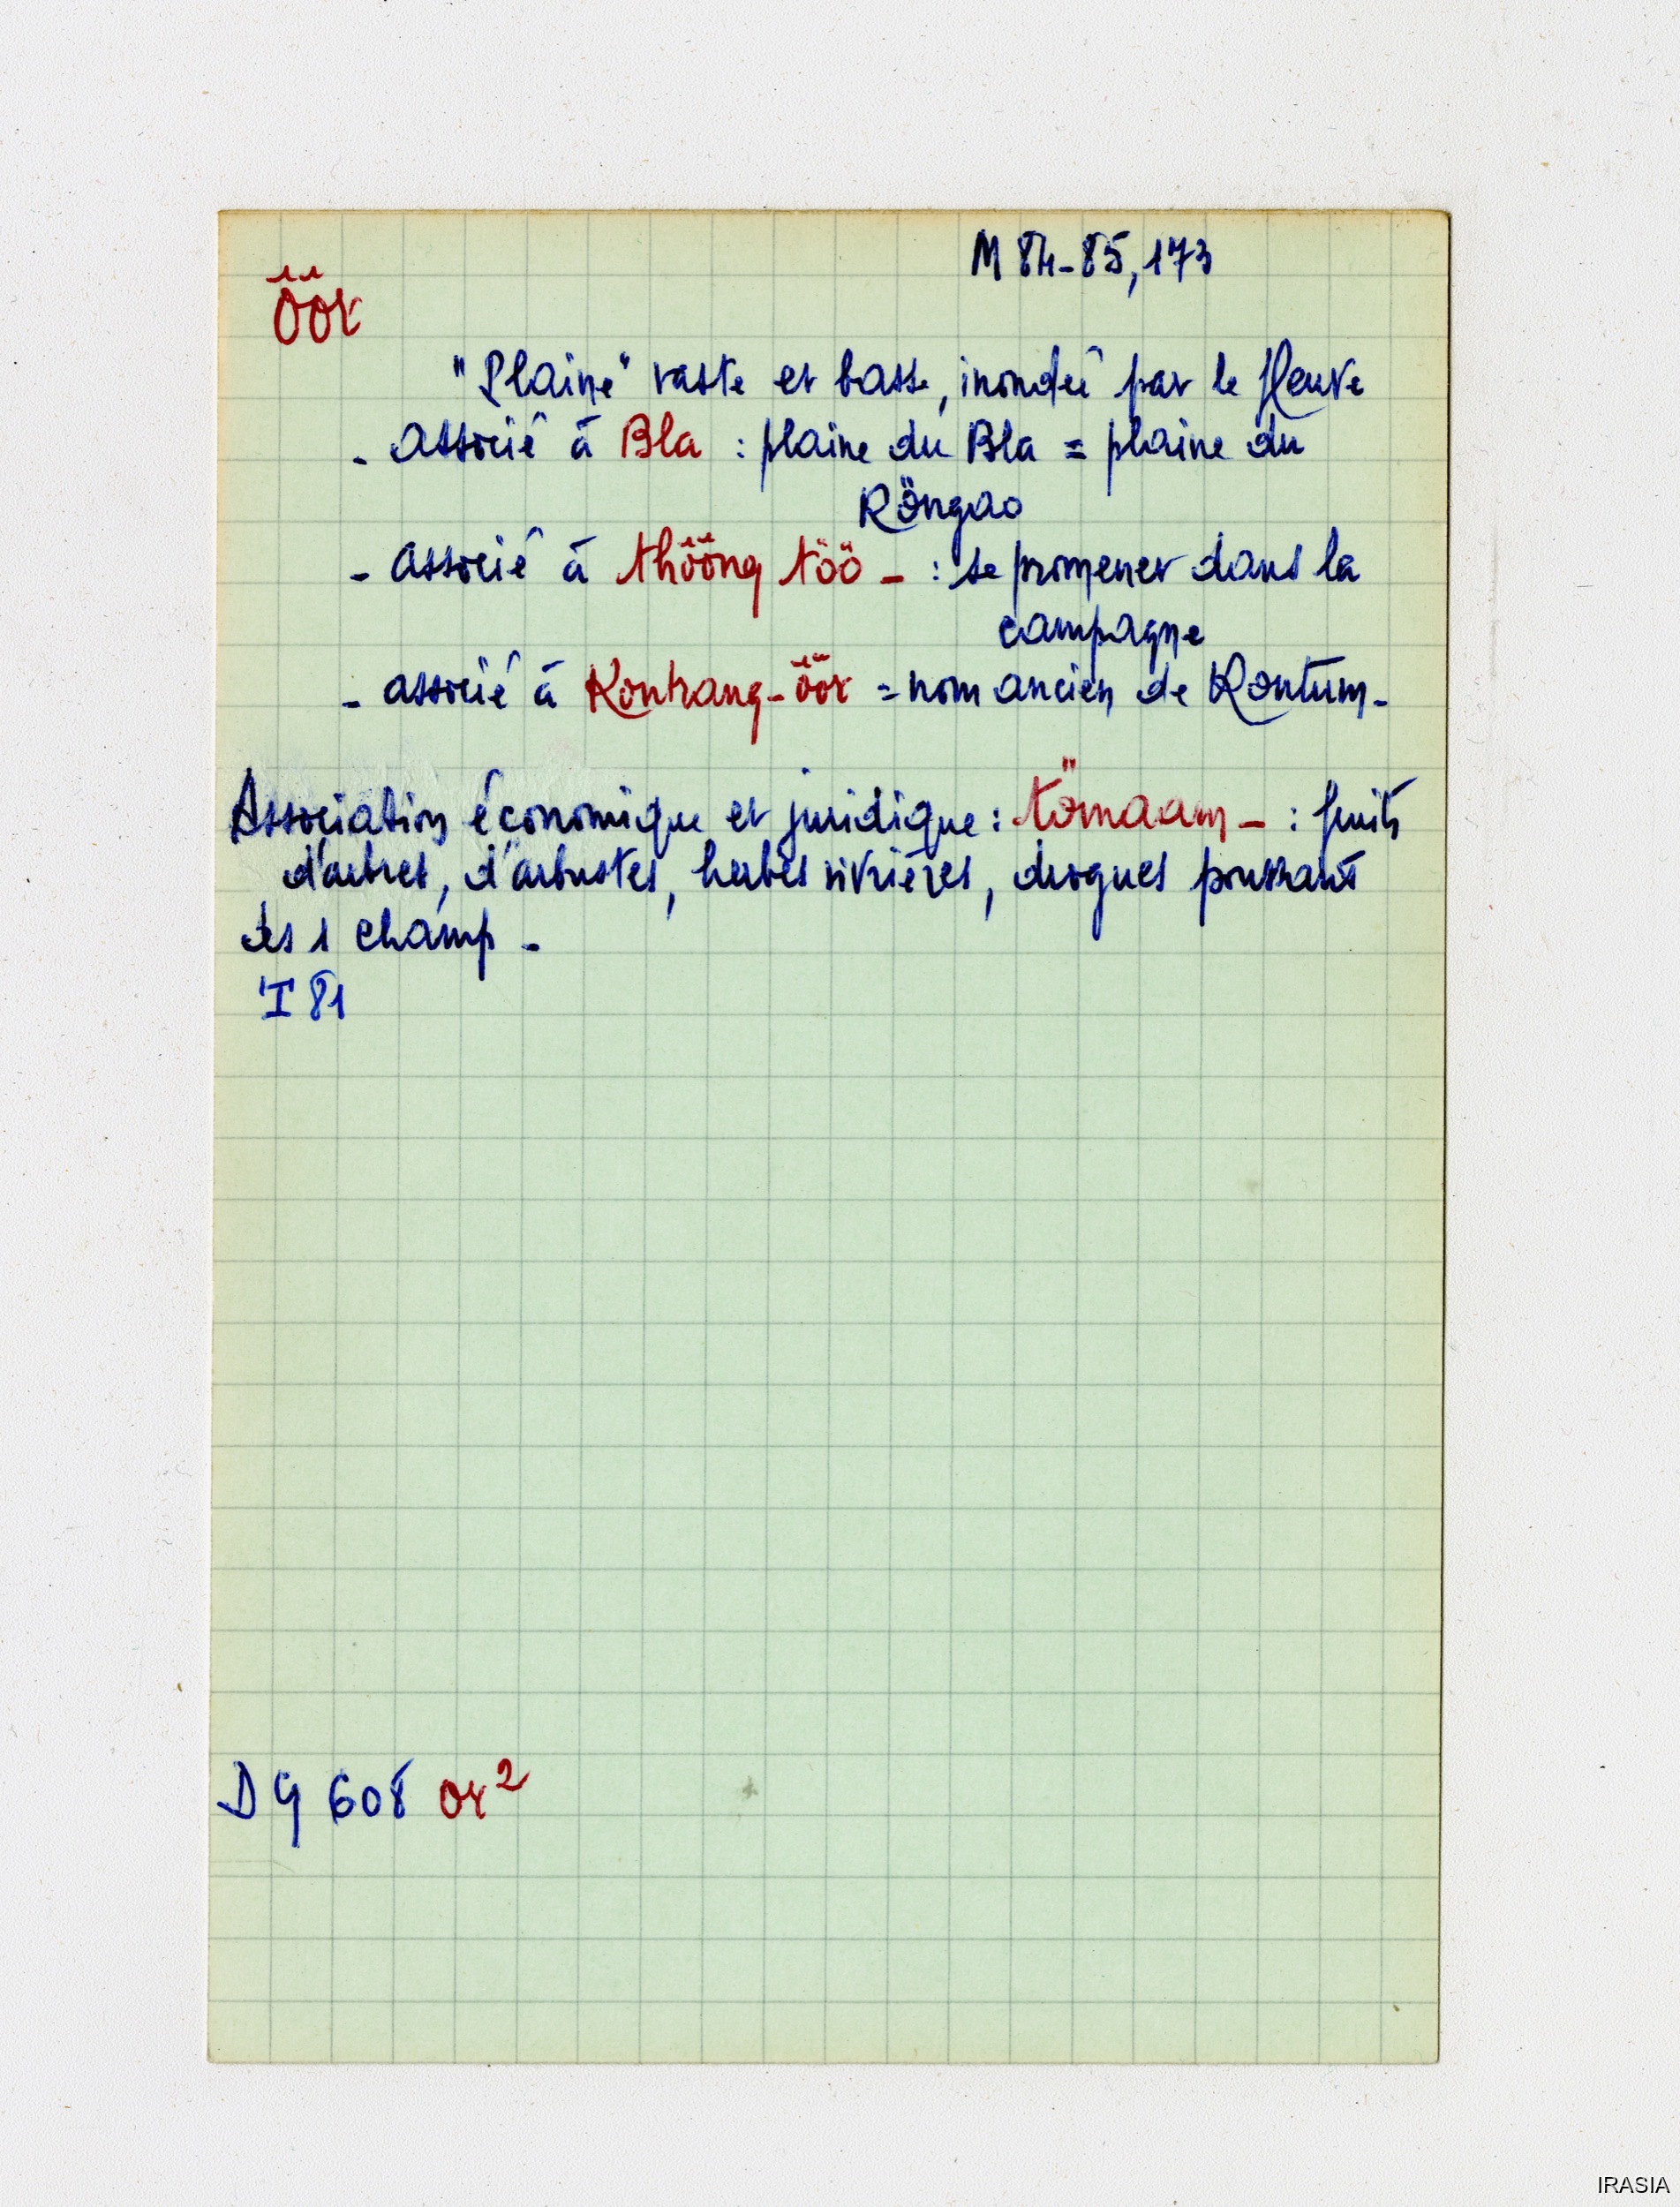 M 84-85, 173
ôôr
"Plaine" vaste et basse, inondée par le fleuve
- associé à Bla : plaine du Bla = plaine du
Röngao
- associé à thôông töö - : se promener dans la
campagne
- associé à Kontrang-ôôr = nom ancien de Kontum -
Association économique et juridique : tömaam - : fruits
d'arbres, d'arbustes, herbes vivrières, drogues poussant
ds 1 champ -
I 81
DG 608 or²
IRASIA